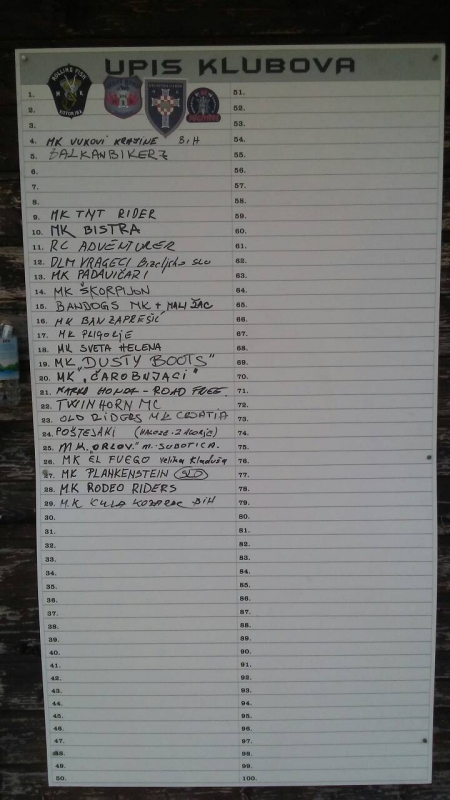 UPIS KLUBOVA
1.
2.
3.
4. MK VUKOVI KRAJINE BIH
5. BALKANBIKERZ
6.
7.
8.
9. MK TNT RIDER
10. MK BISTRA
11. RC ADVENTURER
12. DLM VRAGECI Bizeljsko SLO
13. MK PADAVIČARI
14. MK ŠKORPIJON
15. BANDOGS MK + MALI ŽAC
16. MK BAN ZAPREŠIĆ
17. MK PLIGORJE
18. MK SVETA HELENA
19. MK "DUSTY BOOTS"
20. MK "ČAROBNJACI"
21. MARKO HONDA - ROAD FREE
22. TWINHORN MC
23. OLD RIDERS MK CROATIA
24. POŠTEJAKI
25. MK "ORLOVI" M. SUBOTICA.
26. MK EL FUEGO Velika Kladuša
27. MK PLANKENSTEIN SLO
28. MK RODEO RIDERS
29. MK KULA KOZARAC BIH
30.
31.
32.
33.
34.
35.
36.
37.
38.
39.
40.
41.
42.
43.
44.
45.
46.
47.
48.
49.
50.
51.
52.
53.
54.
55.
56.
57.
58.
59.
60.
61.
62.
63.
64.
65.
66.
67.
68.
69.
70.
71.
72.
73.
74.
75.
76.
77.
78.
79.
80.
81.
82.
83.
84.
85.
86.
87.
88.
89.
90.
91.
92.
93.
94.
95.
96.
97.
98.
99.
100.